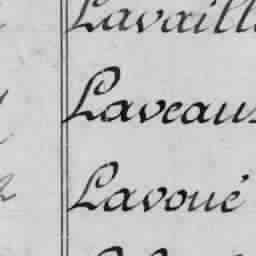 Lavaill
Laveaus
Lavoué